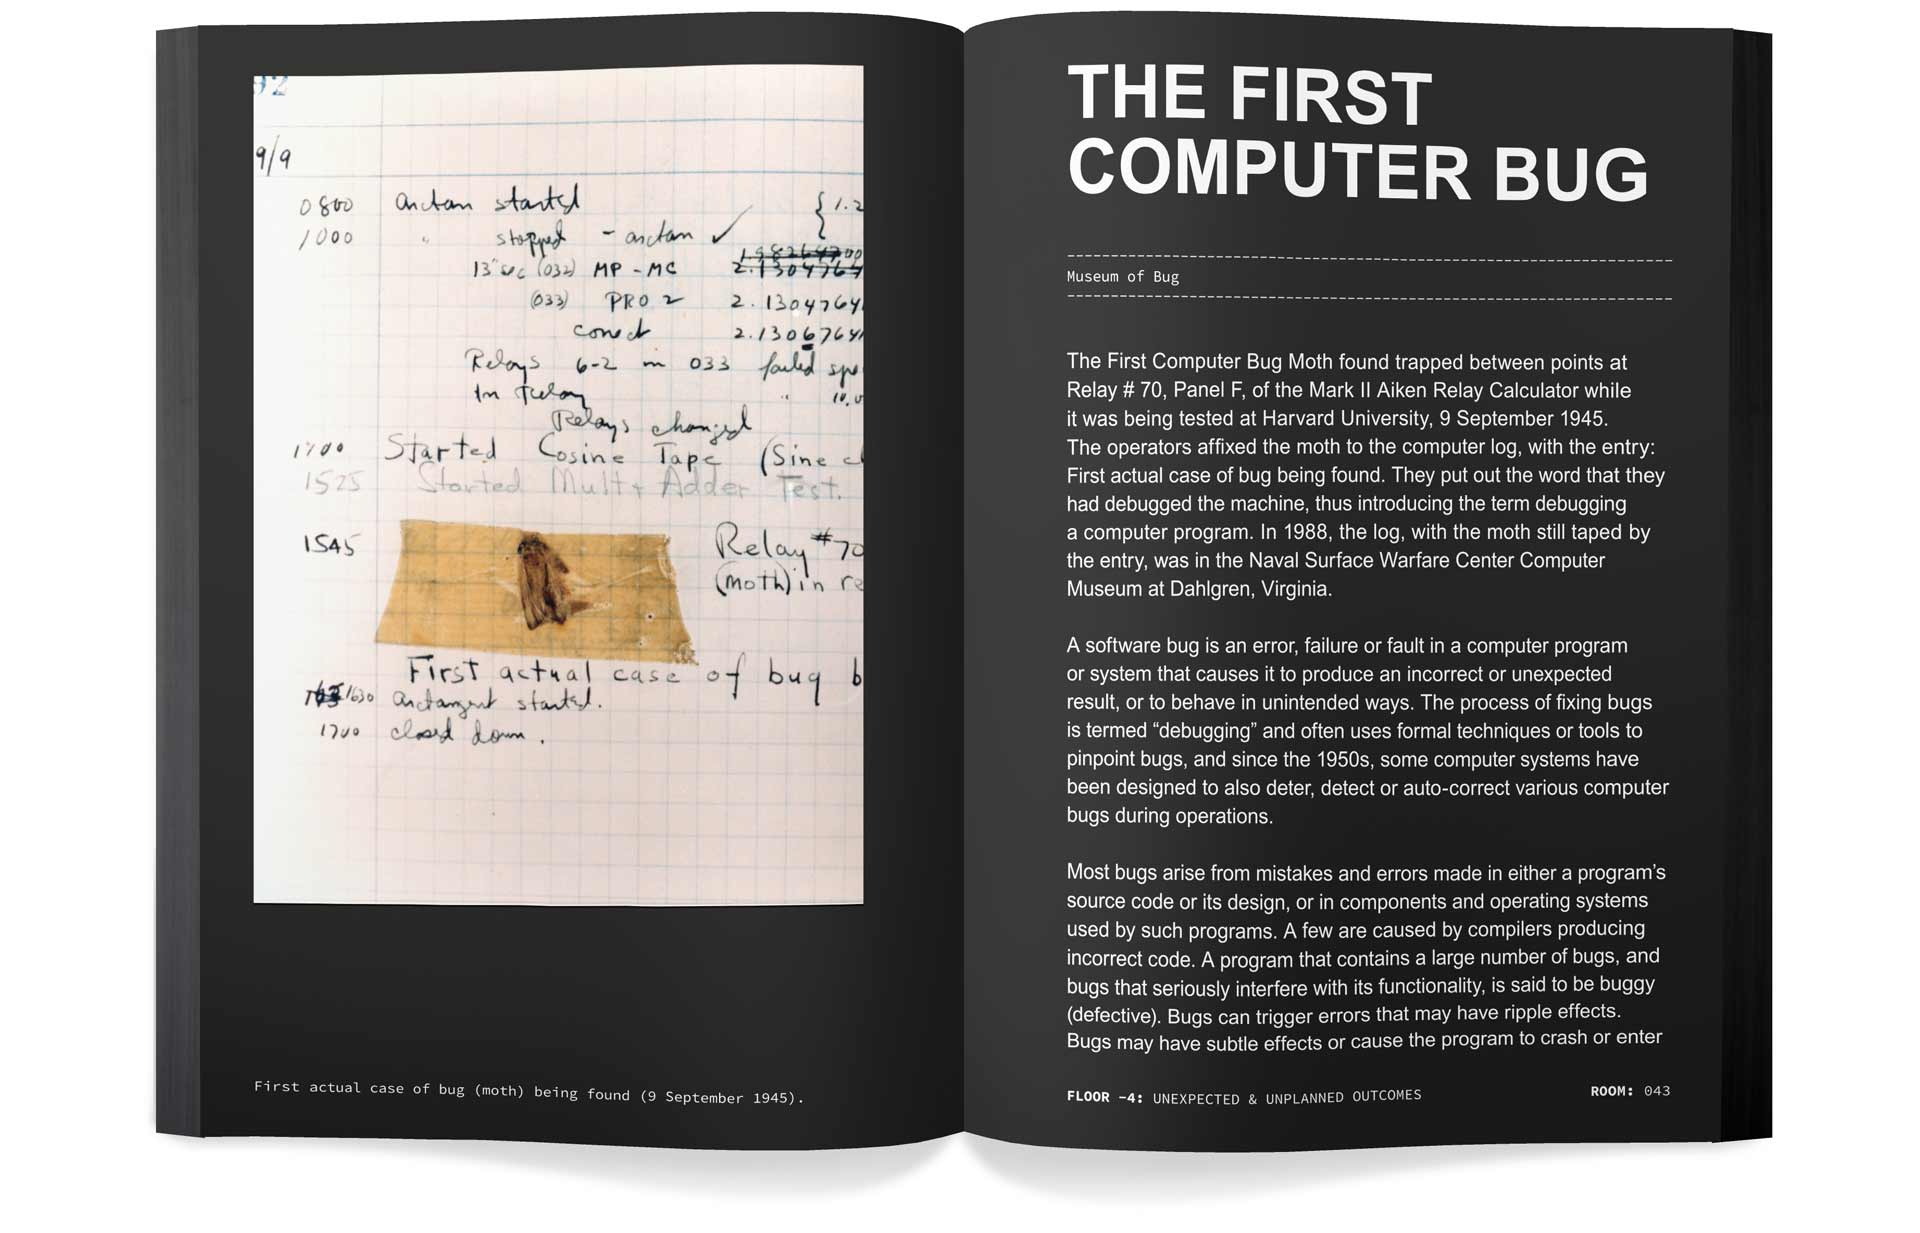 92
9/9
0800 arctan started {1.2
1000 " stopped - arctan ✓
13"uc (032) MP - MC
(033) PRO 2 2.13047641
conect 2.13067641
Relays 6-2 in 033 failed spe
In relay " 10.0
Relays changed
1700 Started Cosine Tape (Sine c
1525 Started Mult + Adder Test.
1545 Relay #70
(moth) in re
First actual case of bug b
1630 arctangent started.
1700 closed down.
First actual case of bug (moth) being found (9 September 1945).
THE FIRST
COMPUTER BUG
Museum of Bug
The First Computer Bug Moth found trapped between points at
Relay # 70, Panel F, of the Mark II Aiken Relay Calculator while
it was being tested at Harvard University, 9 September 1945.
The operators affixed the moth to the computer log, with the entry:
First actual case of bug being found. They put out the word that they
had debugged the machine, thus introducing the term debugging
a computer program. In 1988, the log, with the moth still taped by
the entry, was in the Naval Surface Warfare Center Computer
Museum at Dahlgren, Virginia.
A software bug is an error, failure or fault in a computer program
or system that causes it to produce an incorrect or unexpected
result, or to behave in unintended ways. The process of fixing bugs
is termed “debugging” and often uses formal techniques or tools to
pinpoint bugs, and since the 1950s, some computer systems have
been designed to also deter, detect or auto-correct various computer
bugs during operations.
Most bugs arise from mistakes and errors made in either a program’s
source code or its design, or in components and operating systems
used by such programs. A few are caused by compilers producing
incorrect code. A program that contains a large number of bugs, and
bugs that seriously interfere with its functionality, is said to be buggy
(defective). Bugs can trigger errors that may have ripple effects.
Bugs may have subtle effects or cause the program to crash or enter
FLOOR −4: UNEXPECTED & UNPLANNED OUTCOMES
ROOM: 043